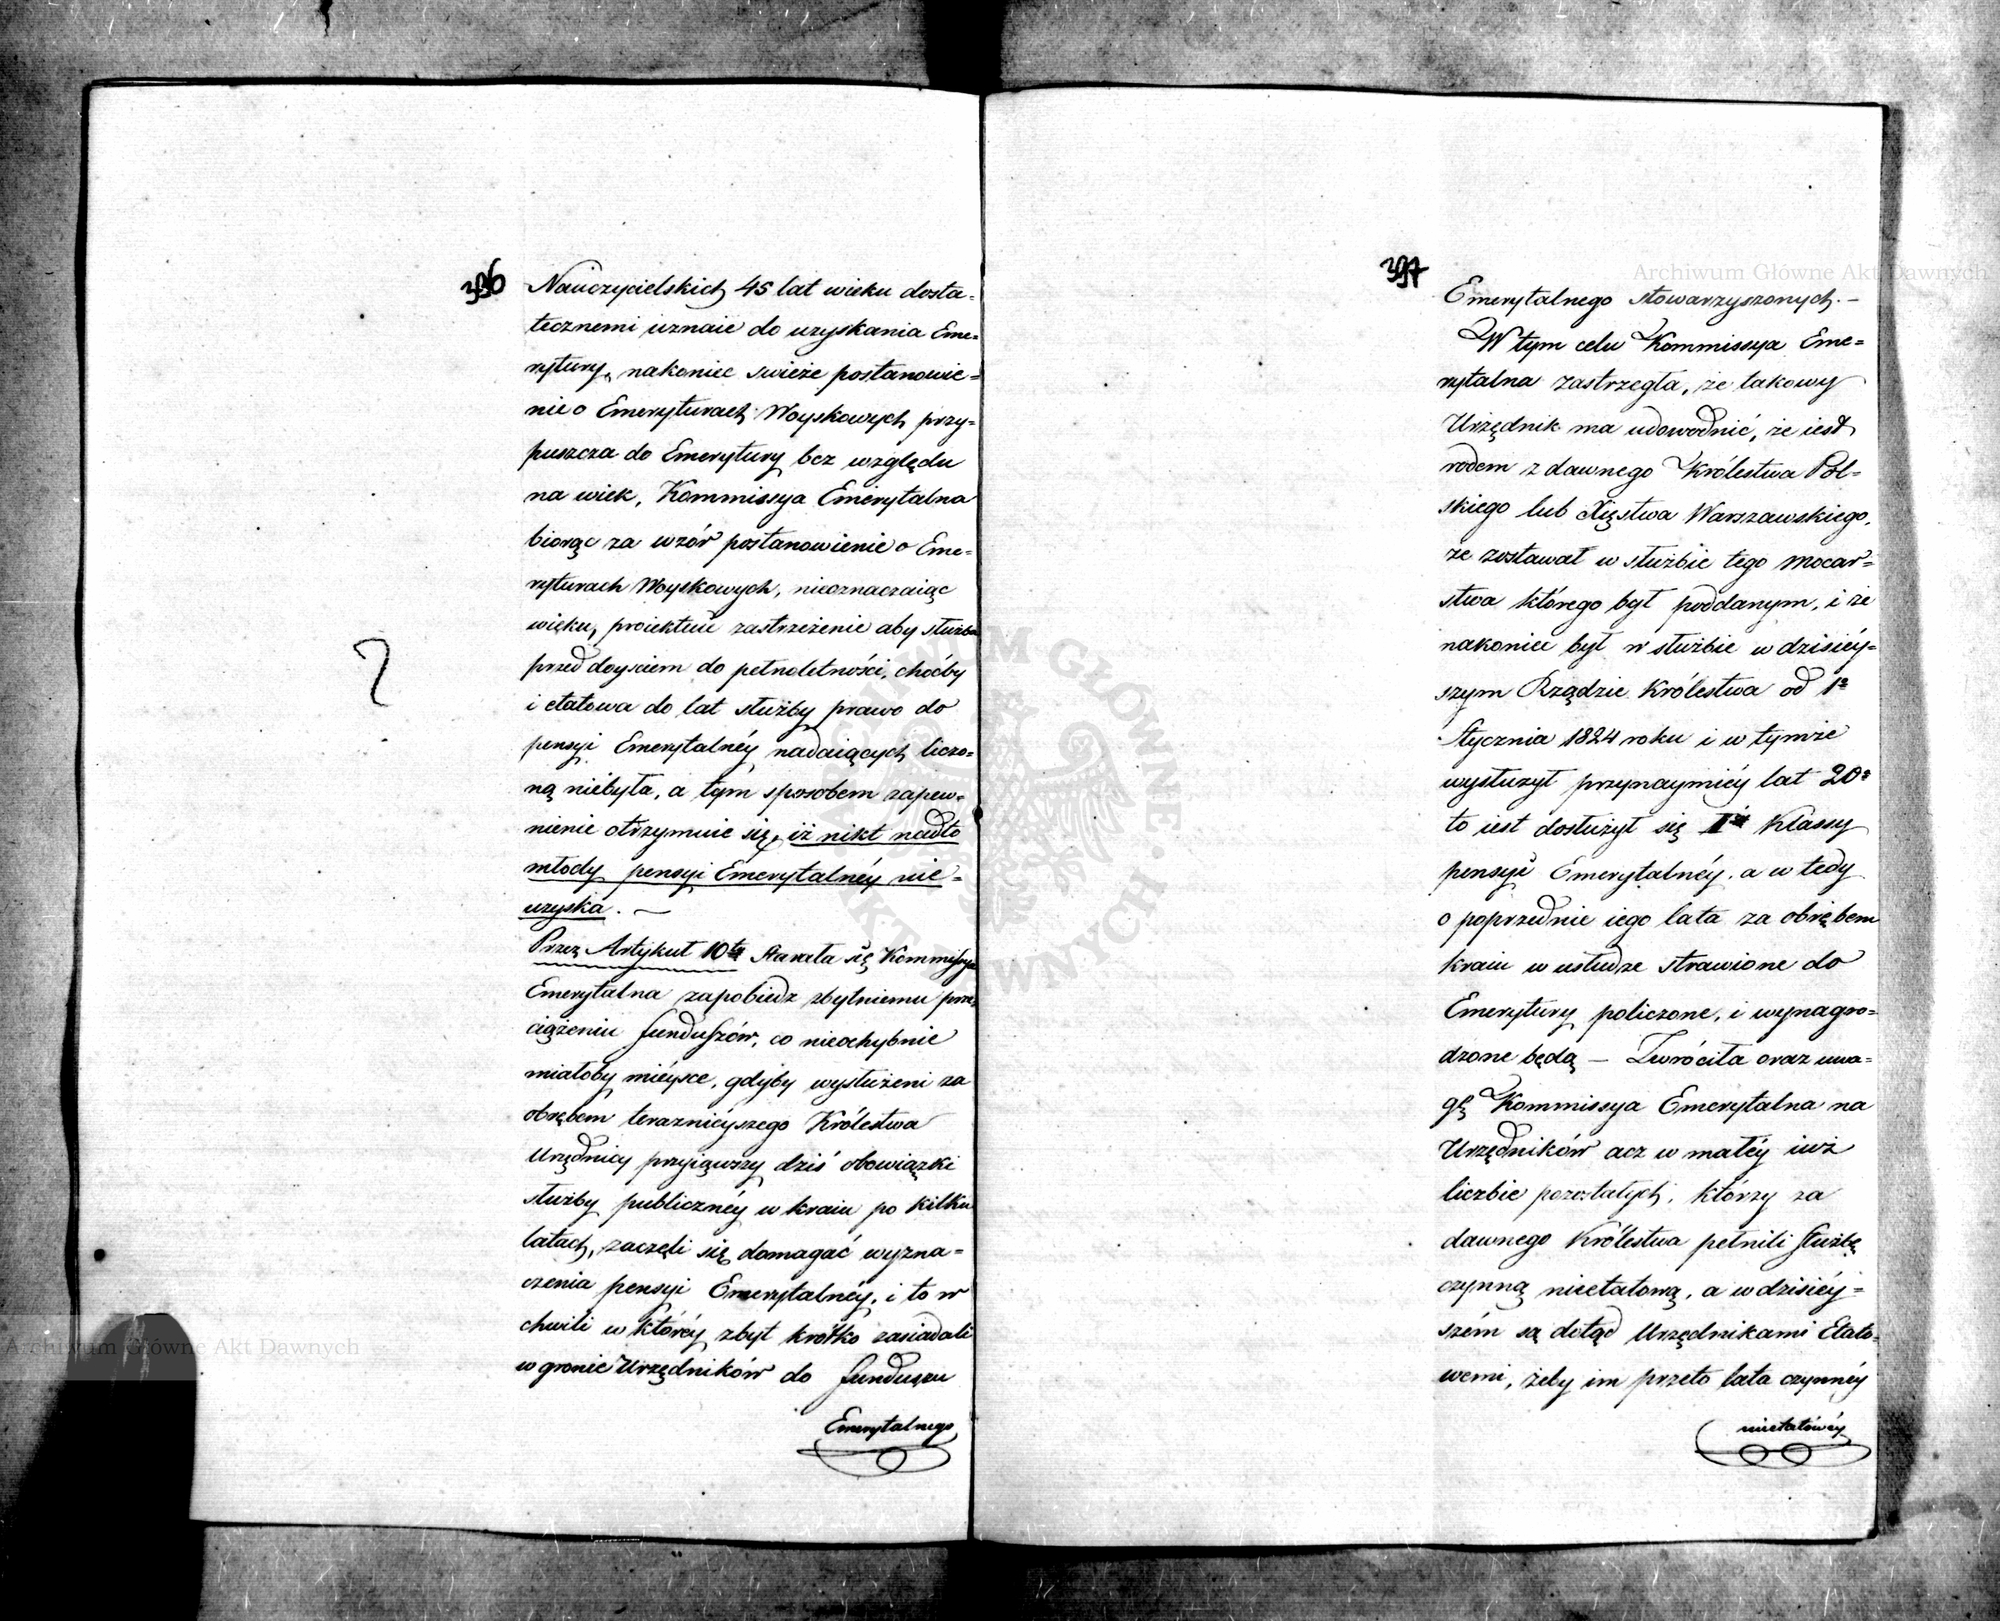 396
Nauczycielskich 45 lat wieku dosta-
tecznemi uznaie do uzyskania Eme-
rytury, nakoniec swieże postanowie-
nie o Emeryturach Woyskowych przy-
puszcza do Emerytury bez względu
na wiek, Kommissya Emerytalna
biorąc za wzór postanowienie o Eme-
ryturach Woyskowych, nieoznaczaiąc
wieku, proiektuie zastrzeżenie aby służba
przed doyściem do pełnoletności, choćby
i etatowa do lat służby prawo do
pensyi Emerytalnéy nadaiących liczo-
ną niebyła, a tym sposobem zapew-
nienie otrzymuie się, iż nikt nadto
młody pensyi Emerytalnéy nie-
uzyska. —
Przez Artykuł 10ty starała się Kommissya
Emerytalna zapobiedz zbytniemu prze
ciążeniu funduszów, co nieochybnie
miałoby miéysce, gdyby wysłużeni za
obrębem teraznieyszego Królestwa
Urzędnicy przyiąwszy dziś obowiązki
służby publicznéy w kraiu po kilku
latach, zaczęli się domagać wyzna-
czenia pensyi Emerytalnéy, i to w
chwili w któréy zbyt krótko zasiadali
w gronie Urzędników do funduszu
Emerytalnego
397
Emerytalnego stowarzyszonych. —
W tym celu Kommissya Eme-
rytalna zastrzegła, że takowy
Urzędnik ma udowodnić, że iest
rodem z dawnego Królestwa Pol-
skiego lub Xięstwa Warszawskiego,
że zostawał w służbie tego mocar-
stwa którego był poddanym, i że
nakoniec był w służbie w dzisiéy-
szym Rządzie Królestwa od 1o
Stycznia 1824 roku i w tymże
wysłużył przynaymniéy lat 20o
to iest dosłużył się Iéy Klassy
pensyi Emerytalnéy. a w tedy
o poprzednie iego lata za obrębem
kraiu w usłudze strawione do
Emerytury policzone, i wynagro-
dzone będą — Zwróciła oraz uwa-
gę Kommissya Emerytalna na
Urzędników acz w małéy iuż
liczbie pozostałych, którzy za
dawnego Królestwa pełnili służbę
czynną nieetatową, a w dzisiéy-
szém są dotąd Urzędnikami Etato-
wemi, żeby im przeto lata czynnéy
nieetatowéy
Archiwum Główne Akt Dawnych
Archiwum Główne Akt Dawnych
ARCHIWUM GŁÓWNE AKT DAWNYCH